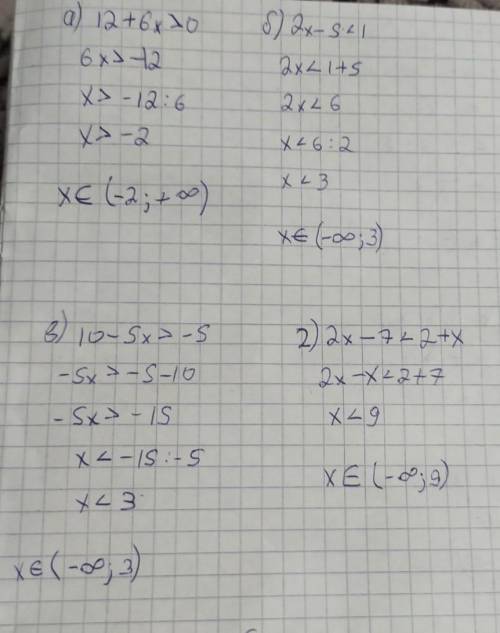 а) 12+6x>0
6x>-12
x>-12:6
x>-2
x∈(-2;+∞)
б) 2x-5<1
2x<1+5
2x<6
x<6:2
x<3
x∈(-∞;3)
в) 10-5x>-5
-5x>-5-10
-5x>-15
x<-15:-5
x<3
x∈(-∞;3)
г) 2x-7<2+x
2x-x<2+7
x<9
x∈(-∞;9)